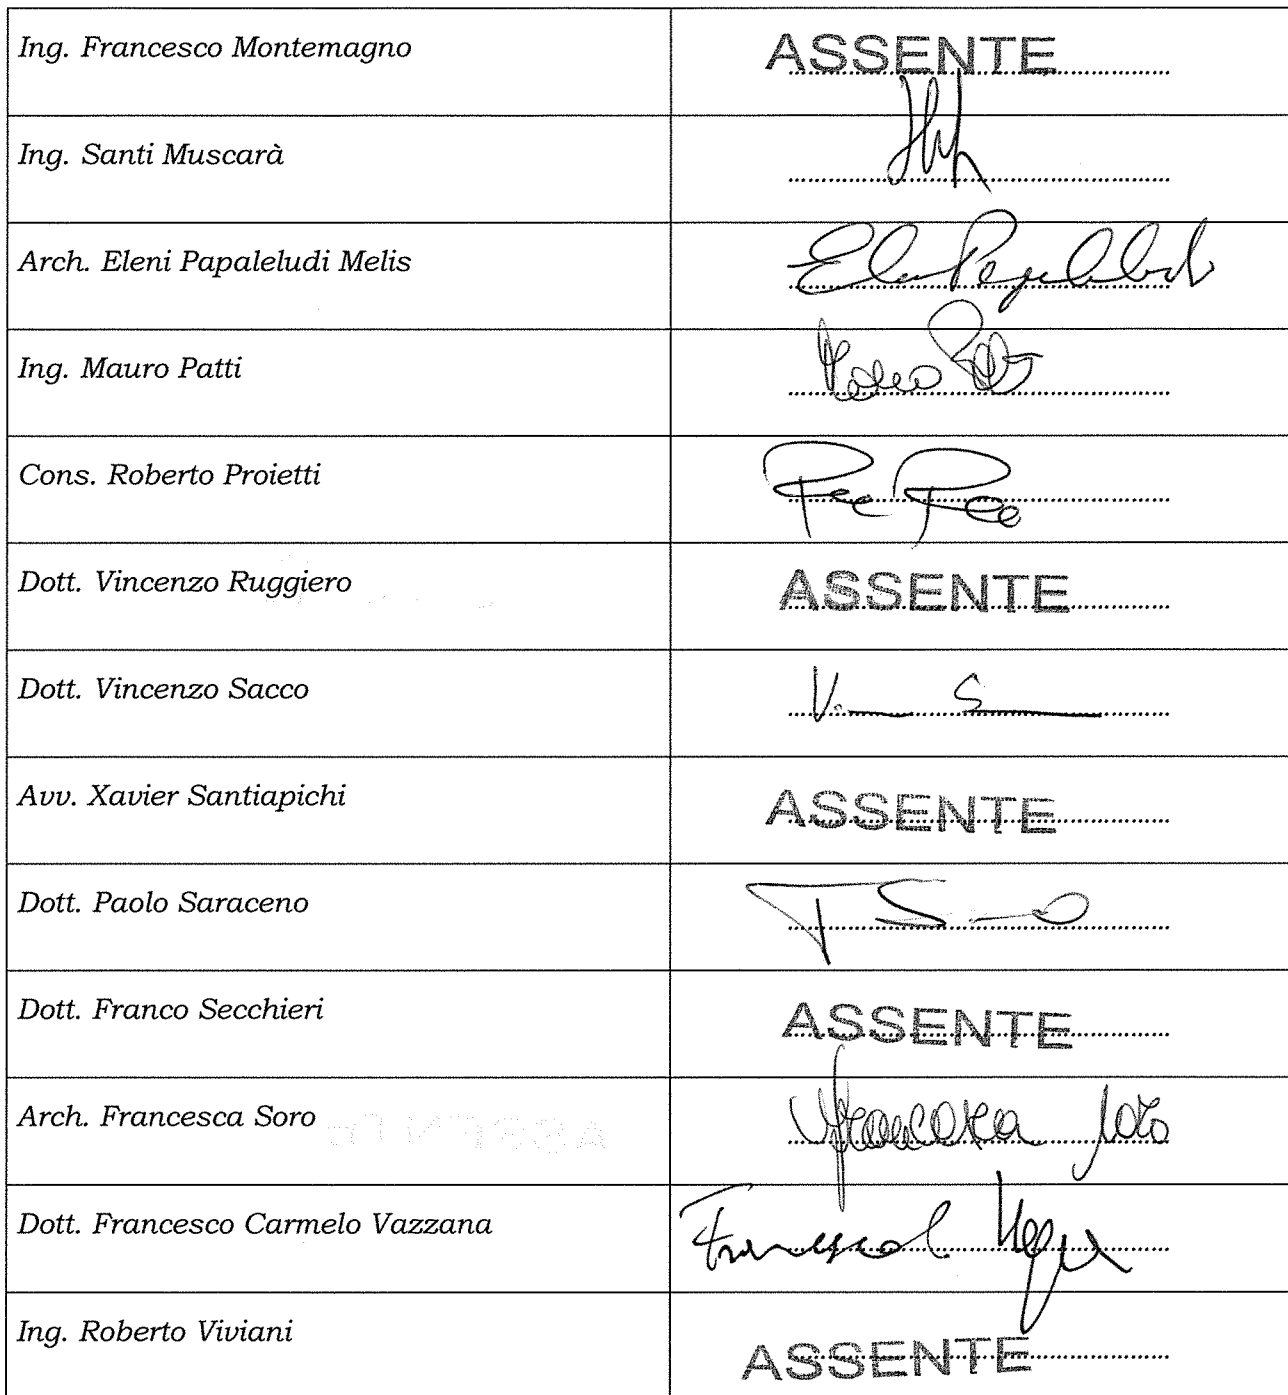 Ing. Francesco Montemagno ASSENTE
Ing. Santi Muscarà
Arch. Eleni Papaleludi Melis
Ing. Mauro Patti
Cons. Roberto Proietti
Dott. Vincenzo Ruggiero ASSENTE
Dott. Vincenzo Sacco
Avv. Xavier Santiapichi ASSENTE
Dott. Paolo Saraceno
Dott. Franco Secchieri ASSENTE
Arch. Francesca Soro
Dott. Francesco Carmelo Vazzana
Ing. Roberto Viviani ASSENTE